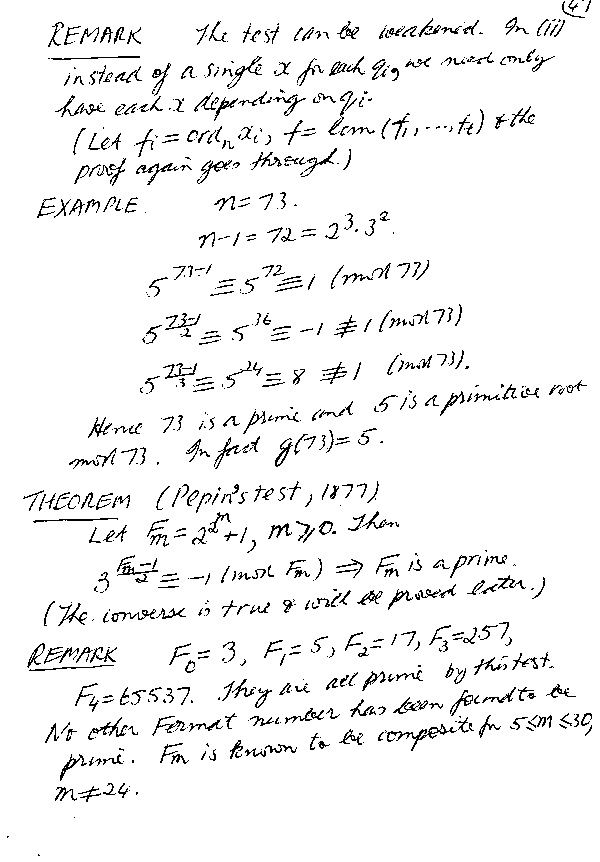 (47
REMARK The test can be weakened. In (ii)
instead of a single x for each qᵢ, we need only
have each x depending on qᵢ.
(Let fᵢ = ordₙ xᵢ, f = lcm (f₁, ..., fₜ) & the
proof again goes through.)
EXAMPLE. n = 73.
n-1 = 72 = 2³·3².
5⁷³⁻¹ ≡ 5⁷² ≡ 1 (mod 73)
5^{\frac{73-1}{2}} ≡ 5³⁶ ≡ -1 ≢ 1 (mod 73)
5^{\frac{73-1}{3}} ≡ 5²⁴ ≡ 8 ≢ 1 (mod 73).
Hence 73 is a prime and 5 is a primitive root
mod 73. In fact g(73) = 5.
THEOREM (Pepin's test, 1877)
Let Fₘ = 2^{2^m} + 1, m ≥ 0. Then
3^{\frac{Fₘ-1}{2}} ≡ -1 (mod Fₘ) ⇒ Fₘ is a prime.
(The converse is true & will be proved later.)
REMARK F₀ = 3, F₁ = 5, F₂ = 17, F₃ = 257,
F₄ = 65537. They are all prime by this test.
No other Fermat number has been found to be
prime. Fₘ is known to be composite for 5 ≤ m ≤ 30,
m ≠ 24.